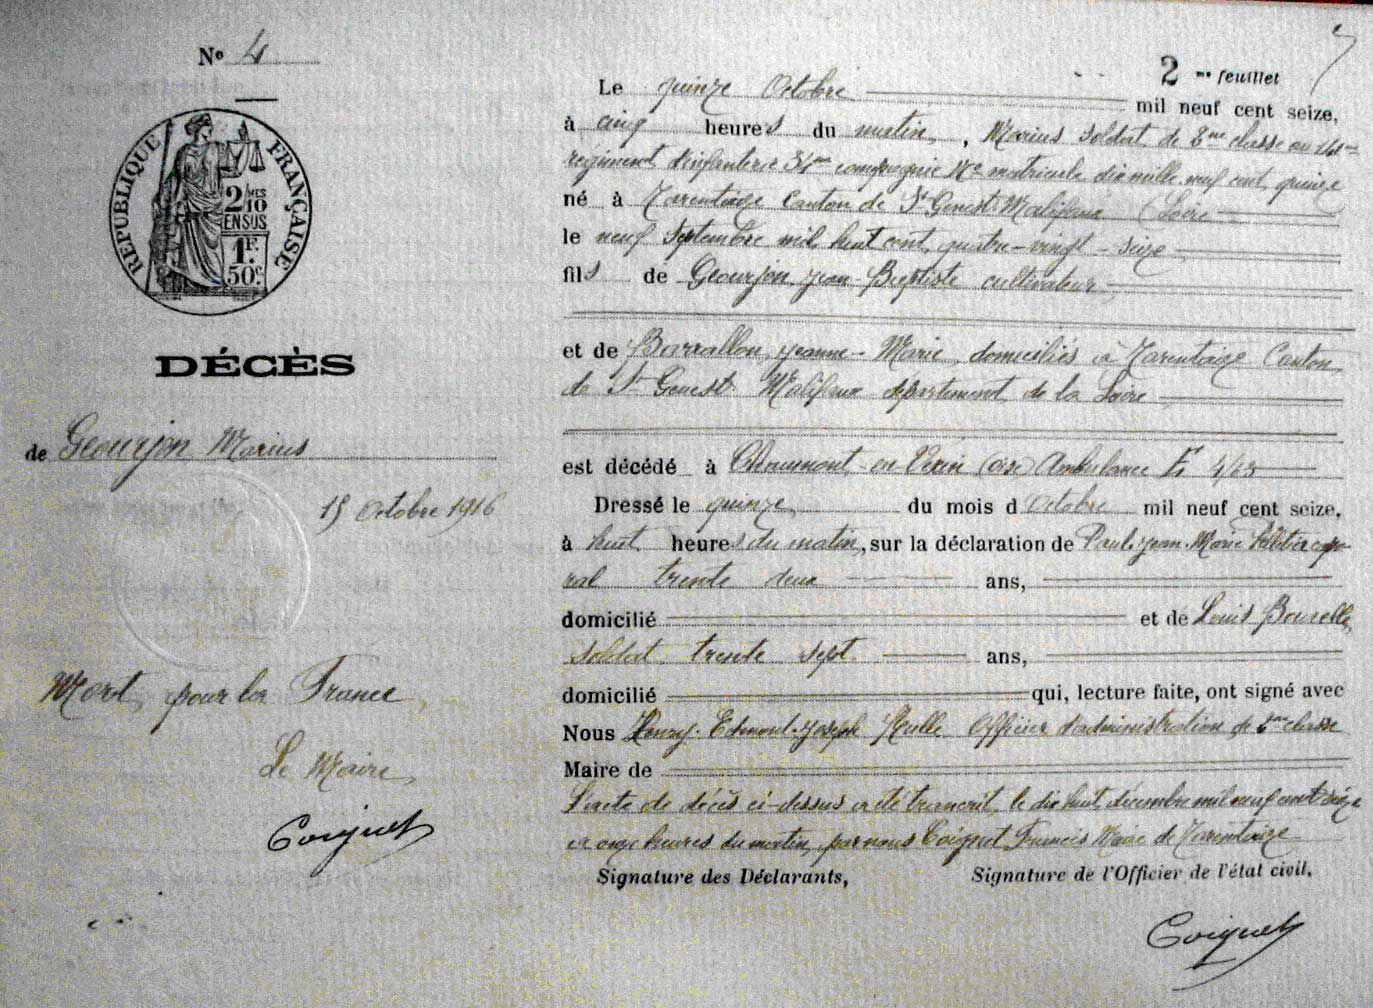 Nº 4
RÉPUBLIQUE FRANÇAISE
2/10 MES
EN SUS
1 F.
50 c.
DÉCÈS
de Geourjon Marius
15 Octobre 1916
Mort pour la France
Le Maire,
Coignet
2 me feuillet
Le quinze Octobre mil neuf cent seize,
à cinq heures du matin, Marius soldat de 2me classe au
régiment d'infanterie 34me compagnie Nº matricule dix mille neuf cent quinze
né à Tarentaize Canton de St Genest-Malifaux (Loire
le neuf septembre mil huit cent quatre-vingt-seize
fils de Geourjon Jean-Baptiste cultivateur
et de Barrallon Jeanne-Marie domiciliés à Tarentaize Canton
de St Genest Malifaux département de la Loire
est décédé à Chaumont-en Vexin (oise) Ambulance
Dressé le quinze du mois d'Octobre mil neuf cent seize,
à huit heures du matin, sur la déclaration de Paul-Jean-Marie capo-
ral trente deux ans,
domicilié et de Louis
soldat trente sept ans,
domicilié qui, lecture faite, ont signé avec
Nous Edmont-Joseph Officier d'administration de 2me classe
Maire de
L'acte de décès ci-dessus a été transcrit le dix huit décembre mil neuf cent seize
à onze heures du matin, par nous Coignet Francis Maire de Tarentaize
Signature des Déclarants, Signature de l'Officier de l'état civil,
Coignet